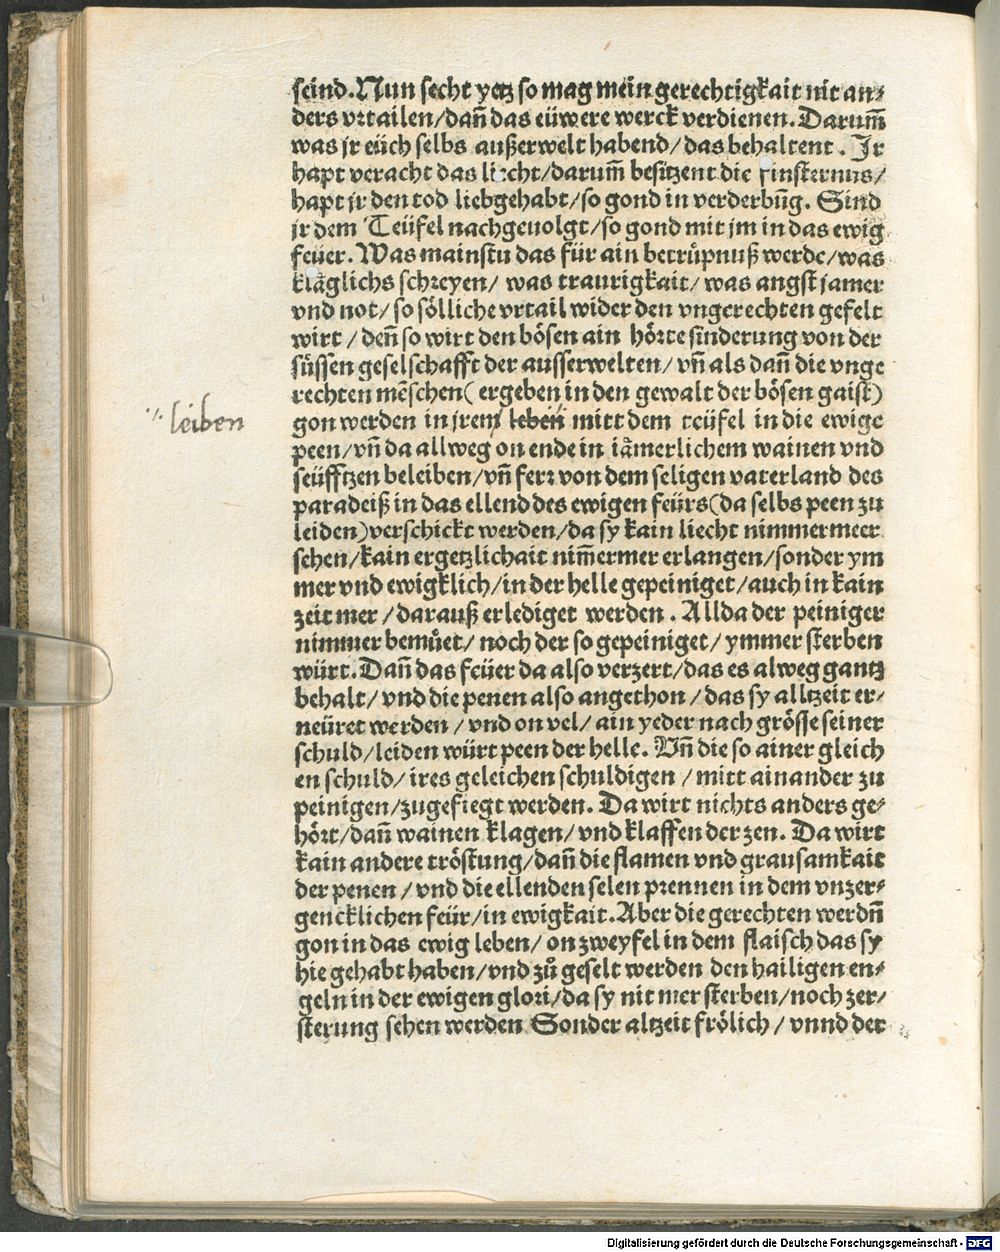 seind. Nun secht yetz so mag mein gerechtigkait nit an⸗
ders vrtailen/dañ das eüwere werck verdienen. Darum̃
was jr eüch selbs außerwelt habend/das behaltent. Jr
hapt veracht das liecht/darum̃ besitzent die finsternus/
hapt jr den tod liebgehabt/so gond in verderbũg. Sind
jr dem Teüfel nachgeuolgt/so gond mit jm in das ewig
feüer. Was mainstu das für ain betrůpnuß werde/was
kläglichs schreyen/ was traurigkait/was angst jamer
vnd not/so sölliche vrtail wider den vngerechten gefelt
wirt/deñ so wirt den bösen ain hörte sünderung von der
süssen geselschafft der ausserwelten/vñ als dañ die vnge
rechten mẽschen(ergeben in den gewalt der bösen gaist)
gon werden in jren leben mitt dem teüfel in die ewige
leiben
peen/vñ da allweg on ende in iämerlichem wainen vnd
seüfftzen beleiben/vñ ferr von dem seligen vaterland des
paradeiß in das ellend des ewigen feürs(da selbs peen zu
leiden)verschickt werden/da sy kain liecht nimmermeer
sehen/kain ergetzlichait nim̃ermer erlangen/sonder ym
mer vnd ewigklich/in der helle gepeiniget/auch in kain
zeit mer/darauß erlediget werden. Allda der peiniger
nimmer bemůet/noch der so gepeiniget/ymmer sterben
würt. Dañ das feüer da also verzert/das es alweg gantz
behalt/vnd die penen also angethon/das sy alltzeit er⸗
neüret werden/vnd on vel/ain yeder nach grösse seiner
schuld/leiden würt peen der helle. Vñ die so ainer gleich
en schuld/ires geleichen schuldigen/mitt ainander zu
peinigen/zugefiegt werden. Da wirt nichts anders ge⸗
hört/dañ wainen klagen/vnd klaffen der zen. Da wirt
kain andere tröstung/dañ die flamen vnd grausamkait
der penen/vnd die ellenden selen prennen in dem vnzer⸗
gencklichen feür/in ewigkait. Aber die gerechten werdñ
gon in das ewig leben/on zweyfel in dem flaisch das sy
hie gehabt haben/vnd zů geselt werden den hailigen en⸗
geln in der ewigen glori/da sy nit mer sterben/noch zer⸗
sterung sehen werden Sonder altzeit frölich/vnnd der
Digitalisierung gefördert durch die Deutsche Forschungsgemeinschaft - DFG